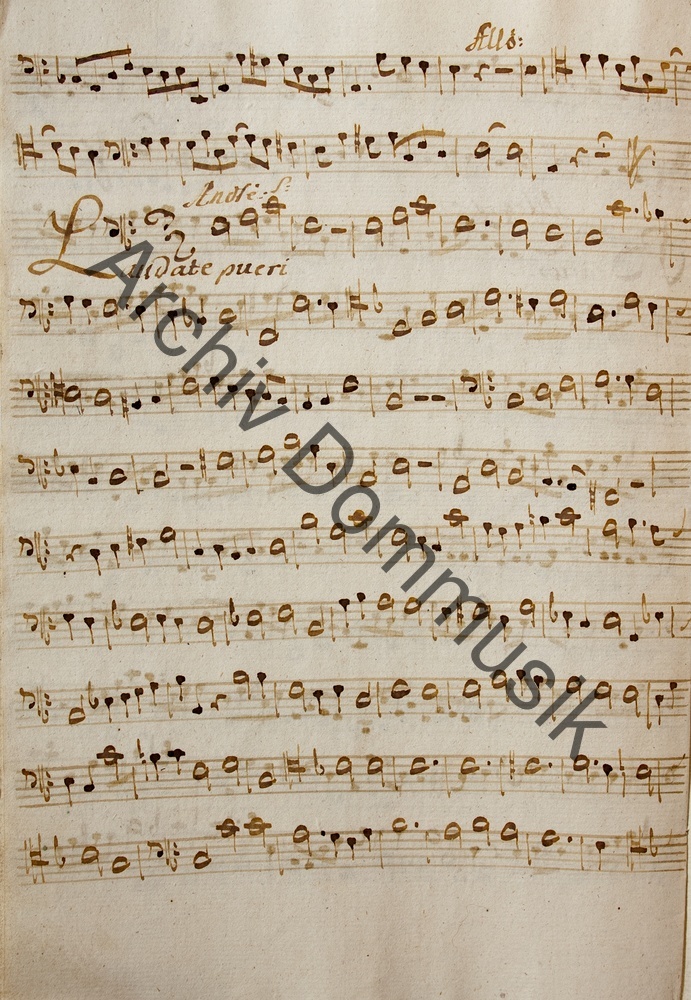 Allo:
Andte
Laudate pueri
Archiv Dommusik